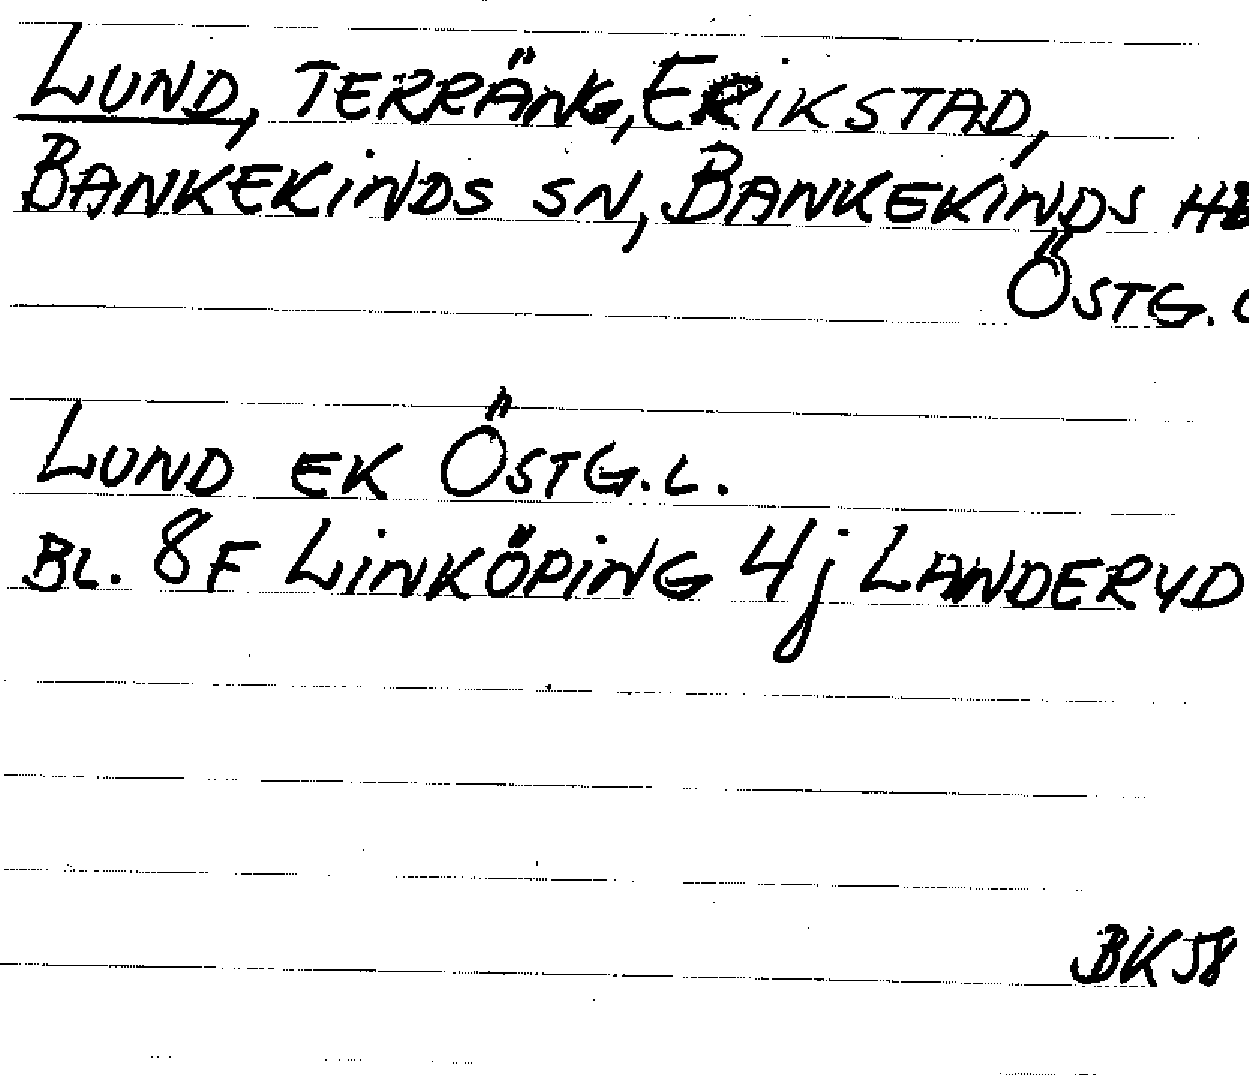 LUND, TERRÄNG, ERIKSTAD,
BANKEKINDS SN, BANKEKINDS
ÖSTG.
LUND EK ÖSTG.L.
BL. 8F LINKÖPING 4j LANDERYD
BK58